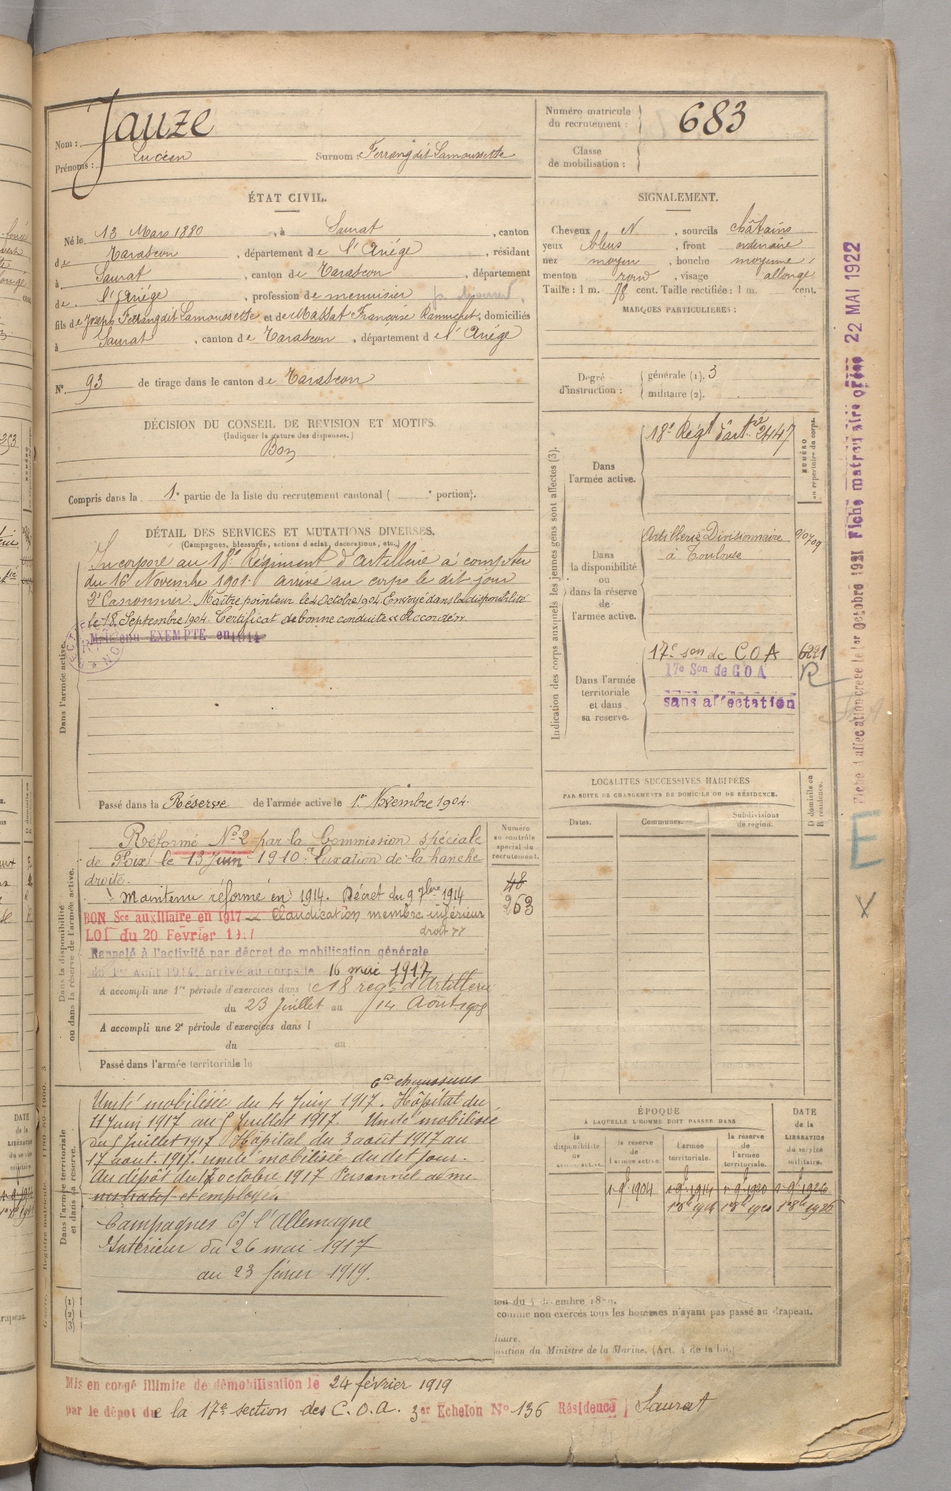 Nom : Jauze
Prénoms : Lucien Surnom : Ferrang dit Lamoussette
Numéro matricule du recrutement : 683
Classe de mobilisation :
ÉTAT CIVIL.
Né le 13 Mars 1880, à Saurat, canton
de Tarascon, département de l'Ariége, résidant
à Saurat, canton de Tarascon, département
de l'Ariége, profession de menuisier
fils de Joseph Ferrang dit Lamoussette et de Massat Françoise, domiciliés
à Saurat, canton de Tarascon, département de l'Ariége
N° 93 de tirage dans le canton de Tarascon
SIGNALEMENT.
Cheveux N, sourcils châtains
yeux bleus, front ordinaire
nez moyen, bouche moyenne,
menton rond, visage allongé
Taille : 1 m. cent. Taille rectifiée : 1 m. cent.
MARQUES PARTICULIÈRES :
Degré d'instruction : générale (1). 3
militaire (2).
DÉCISION DU CONSEIL DE REVISION ET MOTIFS.
(Indiquer la nature des dispenses.)
Bon
Compris dans la 1e partie de la liste du recrutement cantonal ( e portion).
DÉTAIL DES SERVICES ET MUTATIONS DIVERSES.
(Campagnes, blessures, actions d'éclat, décorations, etc.)
Incorporé au 18e Régiment d'Artillerie à compter
du 16 Novembre 1901 arrivé au corps le dit jour
2e Canonnier. Maître pointeur le 4 Octobre 1904. Envoyé dans la disponibilité
le 18 Septembre 1904. Certificat de bonne conduite "Accordé"
Maintenu EXEMPTE en 1914
Dans l'armée active.
Passé dans la Réserve de l'armée active le 1er Novembre 1904
Indication des corps auxquels les jeunes gens sont affectés (3).
NUMÉRO au répertoire du corps.
Dans l'armée active.
18e Régt d'Artie 2147
Dans la disponibilité ou dans la réserve de l'armée active.
Artillerie Divisionnaire
à Toulouse
Dans l'armée territoriale et dans sa réserve.
17e son de COA 6221
17e Son de COA R
sans affectation
Fiche d'affectation créée le 1er octobre 1921 Fiche matricule 22 MAI 1922
E
X
LOCALITÉS SUCCESSIVES HABITÉES
PAR SUITE DE CHANGEMENTS DE DOMICILE OU DE RÉSIDENCE.
Dates. Communes. Subdivisions de région. D domicile ou R résidence.
Dans la disponibilité ou dans la réserve de l'armée active.
Numéro au contrôle spécial du recrutement.
48
263
Réformé N°2 par la Commission spéciale
de Foix le 13 Juin 1910 Luxation de la hanche
droite.
Maintenu réformé en 1914. Décret du 9 7bre 1914
BON Sce auxiliaire en 1917 Claudication membre inférieur
LOI du 20 Février 1917 droit
Rappelé à l'activité par décret de mobilisation générale
du 1er Août 1914, arrivé au corps le 16 mai 1917
A accompli une 1re période d'exercices dans le 18 reg d'Artillerie
du 23 Juillet au 14 Août 1908
A accompli une 2e période d'exercices dans l
du au
Passé dans l'armée territoriale le
Dans l'armée territoriale et dans sa réserve.
Unité mobilisée du 4 Juin 1917. Hôpital du
11 Juin 1917 au 5 Juillet 1917. Unité mobilisée
du 5 Juillet 1917 Hôpital du 3 août 1917 au
17 aout 1917. unité mobilisée du dit jour.
Au dépôt du octobre 1917 Personnel admi-
nistratif et employé.
Campagnes C/ l'Allemagne
Intérieur du 26 mai 1917
au 23 février 1919.
ÉPOQUE
À LAQUELLE L'HOMME DOIT PASSER DANS
la disponibilité de l'armée active.
la réserve de l'armée active. 1er 9bre 1904
l'armée territoriale. 1er 9bre 1914
la réserve de l'armée territoriale. 1er 9bre 1920
DATE de la LIBÉRATION du service militaire. 1er 9bre 1926
1er 8b 1914 1er 8b 1920 1er 8b 1926
comme non exercés tous les hommes n'ayant pas passé au drapeau.
du Ministre de la Marine. (Art. 4 de la loi.)
Mis en congé illimité de démobilisation le 24 février 1919
par le dépôt de la 17e section des C.O.A. 3er Echelon No 136 Résidence Saurat